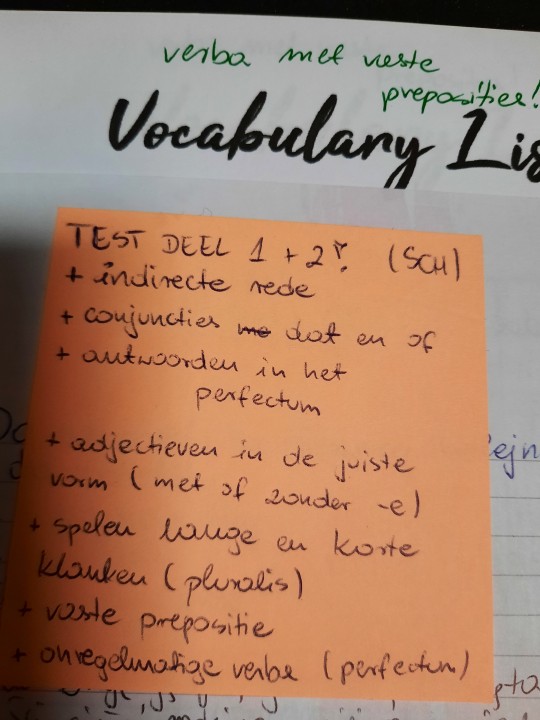 verba met vaste
preposities!
Vocabulary Lis
TEST DEEL 1 + 2! (SCH)
+ indirecte rede
+ conjuncties me dat en of
+ antwoorden in het
perfectum
+ adjectieven in de juiste
vorm (met of zonder -e)
+ spelen lange en korte
klanken (pluralis)
+ vaste prepositie
+ onregelmatige verba (perfectum)
ejn